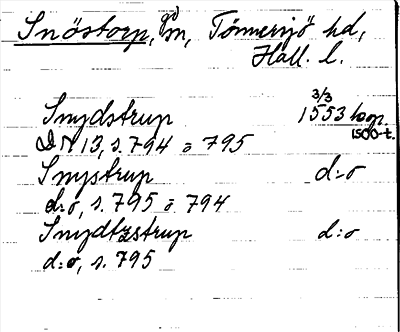 Snöstorp, gd m, Tönnersjö hd,
Hall. l.
Smydstrup 3/3 1553 kop.
1500-t.
DN 13, s. 794 o 795
Smystrup d:o
d:o, s. 795 o 794
Smydtzstrup d:o
d:o, s. 795